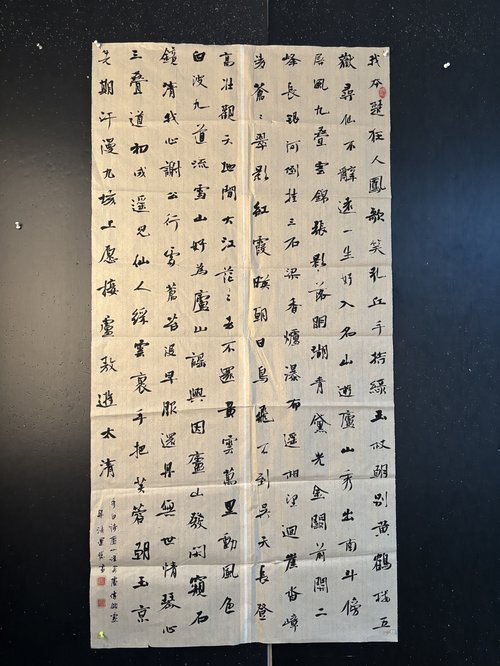 我本楚狂人鳳歌笑孔丘手持綠玉杖朝別黃鶴樓五
嶽尋仙不辭遠一生好入名山遊廬山秀出南斗傍
屏風九疊雲錦張影落明湖青黛光金闕前開二
峰長銀河倒挂三石梁香爐瀑布遥相望迴崖沓嶂
蒼々翠影紅霞映朝日鳥飛不到吳天長登
高壯觀天地間大江茫々去不還黃雲萬里動風色
白波九道流雪山好為廬山謡興因廬山發閑窺石
鏡清我心謝公行處蒼苔沒早服還丹無世情琴心
三疊道初成遥見仙人綵雲裏手把芙蓉朝玉京
先期汗漫九垓上愿接盧敖遊太清
李白詩